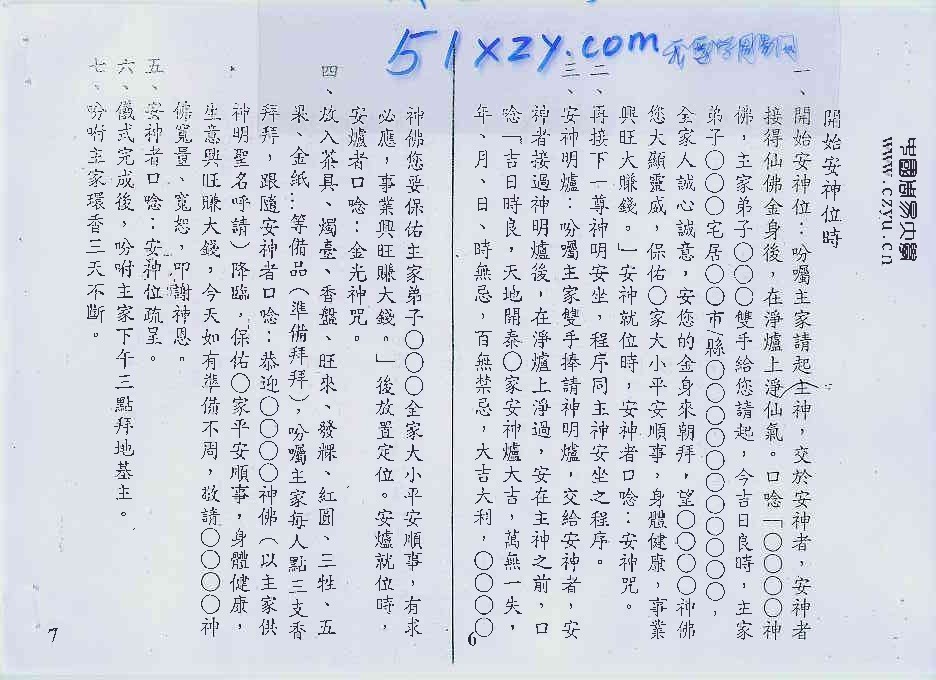 51xzy.com
中國周易大學
www.czyu.cn
開始安神位時
一、開始安神位：吩囑主家請起主神，交於安神者，安神者
接得仙佛金身後，在淨爐上淨仙氣。口唸「〇〇〇〇神
佛，主家弟子〇〇〇雙手給您請起，今吉日良時，主家
弟子〇〇〇宅居〇〇市/縣〇〇〇〇〇〇〇〇〇〇，
全家人誠心誠意，安您的金身來朝拜，望〇〇〇〇神佛
您大顯靈威，保佑〇家大小平安順事，身體健康，事業
興旺大賺錢。」安神就位時，安神者口唸：安神咒。
二、再接下一尊神明安坐，程序同主神安坐之程序。
三、安神明爐：吩囑主家雙手捧請神明爐，交給安神者，安
神者接過神明爐後，在淨爐上淨過，安在主神之前，口
唸「吉日時良，天地開泰〇家安神爐大吉，萬無一失，
年、月、日、時無忌，百無禁忌，大吉大利，〇〇〇〇
6
神佛您要保佑主家弟子〇〇〇全家大小平安順事，有求
必應，事業興旺賺大錢。」後放置定位。安爐就位時，
安爐者口唸：金光神咒。
四、放入茶具、燭臺、香盤、旺來、發粿、紅圓、三牲、五
果、金紙…等備品（準備拜拜），吩囑主家每人點三支香
拜拜，跟隨安神者口唸：恭迎〇〇〇〇神佛（以主家供
神明聖名呼請）降臨，保佑〇家平安順事，身體健康，
生意興旺賺大錢，今天如有準備不周，敬請〇〇〇〇神
佛寬量、寬恕，叩謝神恩。
五、安神者口唸：安神位疏呈。
六、儀式完成後，吩咐主家下午三點拜地基主。
七、吩咐主家環香三天不斷。
7